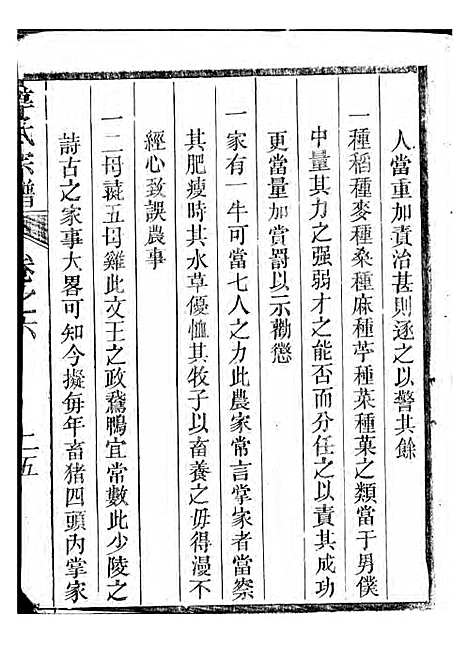 人當重加責治甚則逐之以警其餘
一種稻種麥種桑種麻種苧種菜種菓之類當于男僕
中量其力之强弱才之能否而分任之以責其成功
更當量加賞罰以示勸懲
一家有一牛可當七人之力此農家常言掌家者當察
其肥瘦時其水草優恤其牧子以畜養之毋得漫不
經心致誤農事
一二母彘五母雞此文王之政鵞鴨宜常數此少陵之
詩古之家事大畧可知今擬每年畜猪四頭內掌家
氏宗譜
卷之六
二五